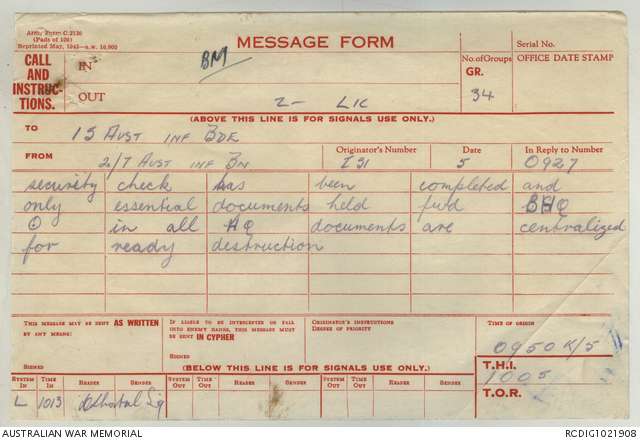 Army Form C.2136
(Pads of 100)
Reprinted May, 1943
MESSAGE FORM
Serial No.
CALL AND INSTRUCTIONS.
IN
BM
No. of Groups
GR.
34
OFFICE DATE STAMP
OUT
2- LIC
(ABOVE THIS LINE IS FOR SIGNALS USE ONLY.)
TO 15 AUST INF BDE
FROM 2/7 AUST INF BN
Originator's Number
I31
Date
5
In Reply to Number
0927
security check has been completed and
only essential documents held fwd BHQ
⊙ in all HQ documents are centralized
for ready destruction
THIS MESSAGE MAY BE SENT AS WRITTEN BY ANY MEANS.
SIGNED
IF LIABLE TO BE INTERCEPTED OR FALL INTO ENEMY HANDS, THIS MESSAGE MUST BE SENT IN CYPHER
SIGNED
ORIGINATOR'S INSTRUCTIONS
DEGREE OF PRIORITY
TIME OF ORIGIN
0950 K/5
(BELOW THIS LINE IS FOR SIGNALS USE ONLY.)
T.H.I.
1005
T.O.R.
SYSTEM IN
TIME IN
READER
SENDER
SYSTEM OUT
TIME OUT
READER
SENDER
SYSTEM OUT
TIME OUT
READER
SENDER
L 1013 Sig
AUSTRALIAN WAR MEMORIAL
RCDIG1021908